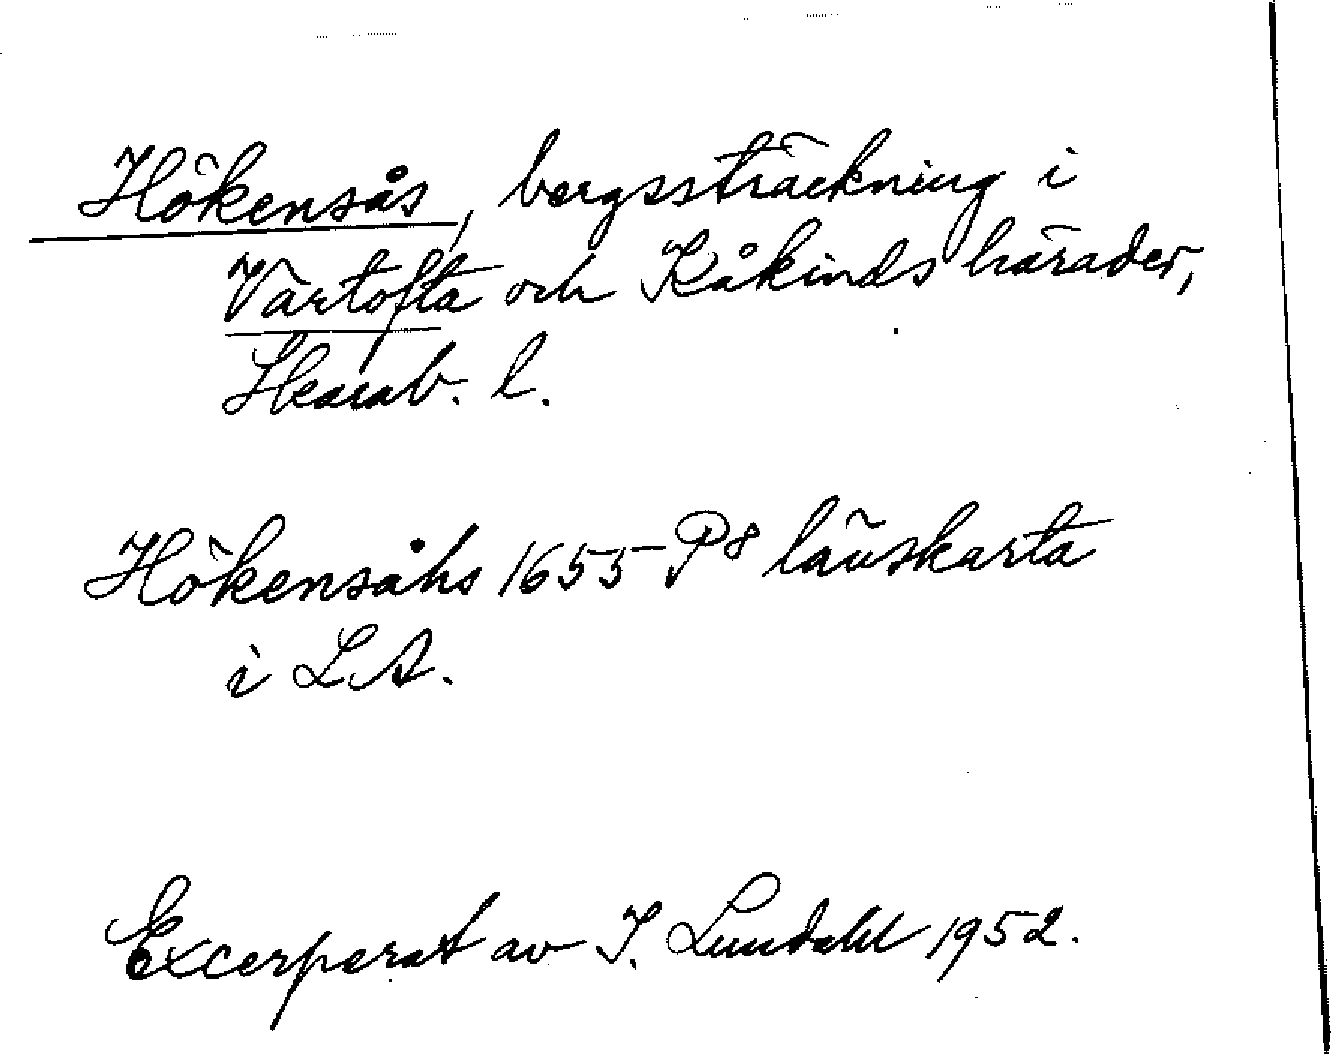 Hökensås, bergssträckning i
Vartofta och Kåkinds härader,
Skarab. l.
Hökensåhs 1655 P8 länskarta
i LA.
Excerperat av I. Lundahl 1952.